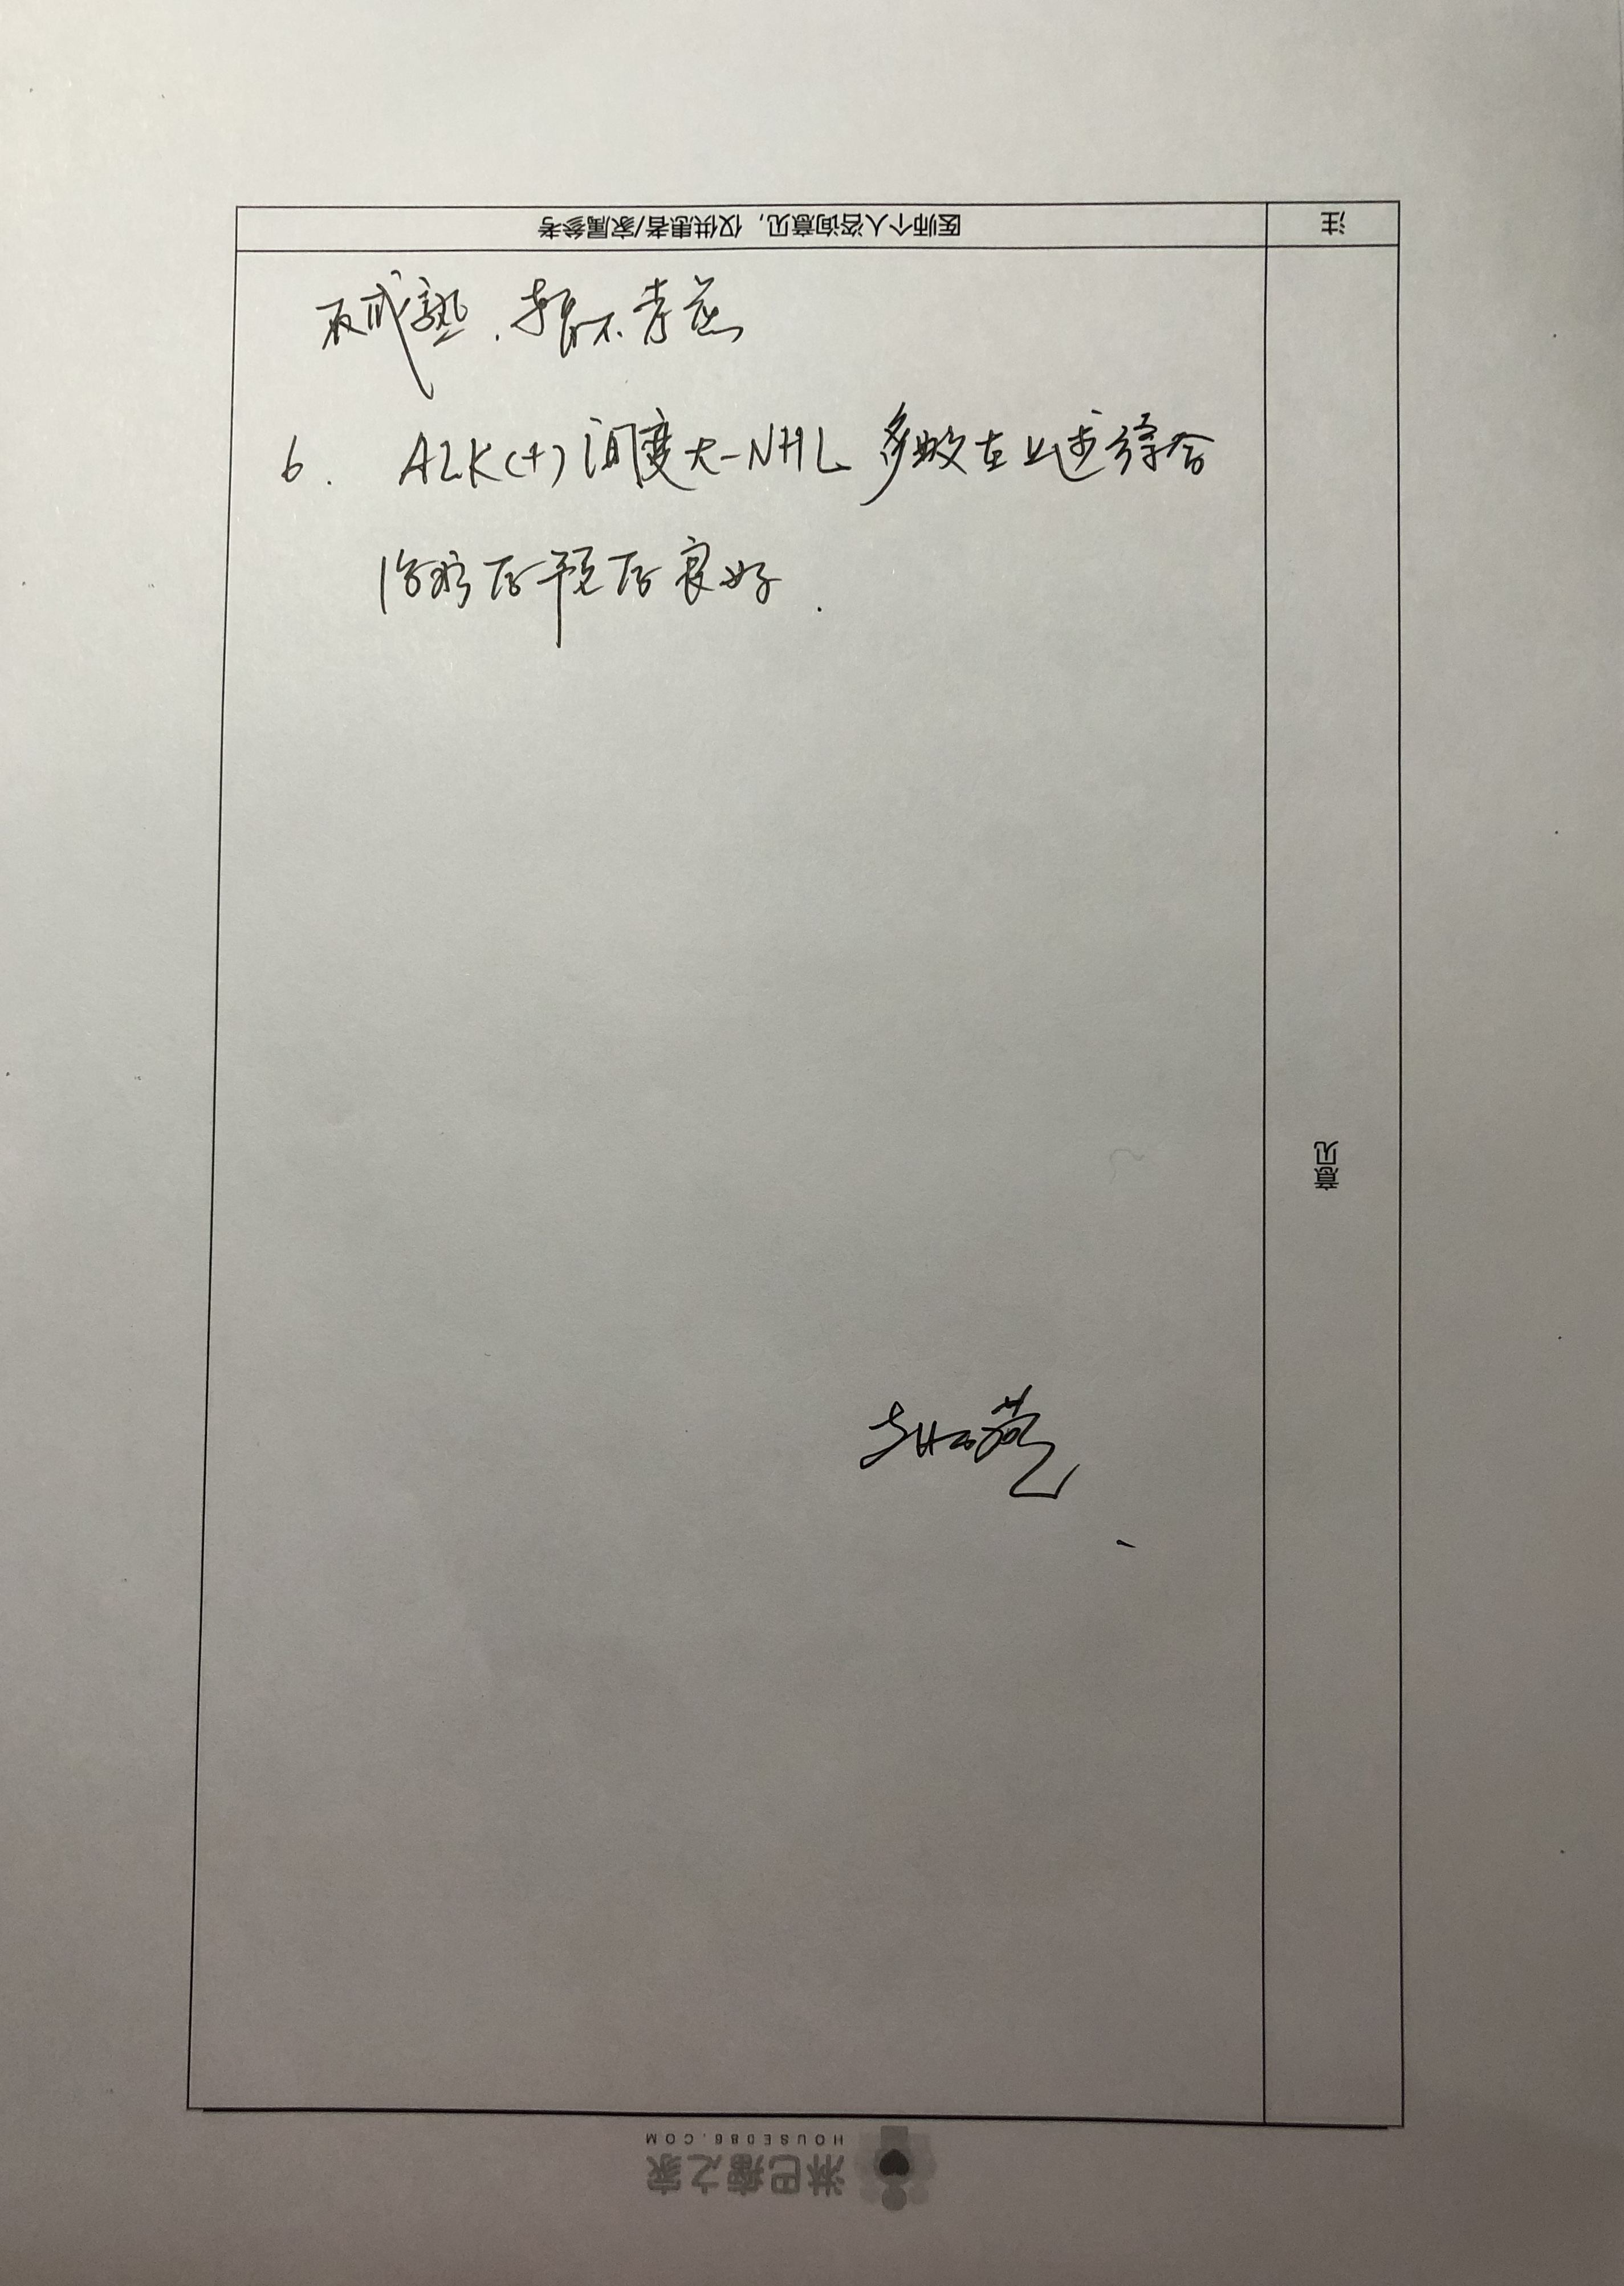 注 医师个人咨询意见，仅供患者/家属参考
不成熟，暂不考虑
6. ALK(+)间变大-NHL 多数在上述综合
治疗后预后良好.
意见
淋巴瘤之家
HOUSE086.COM